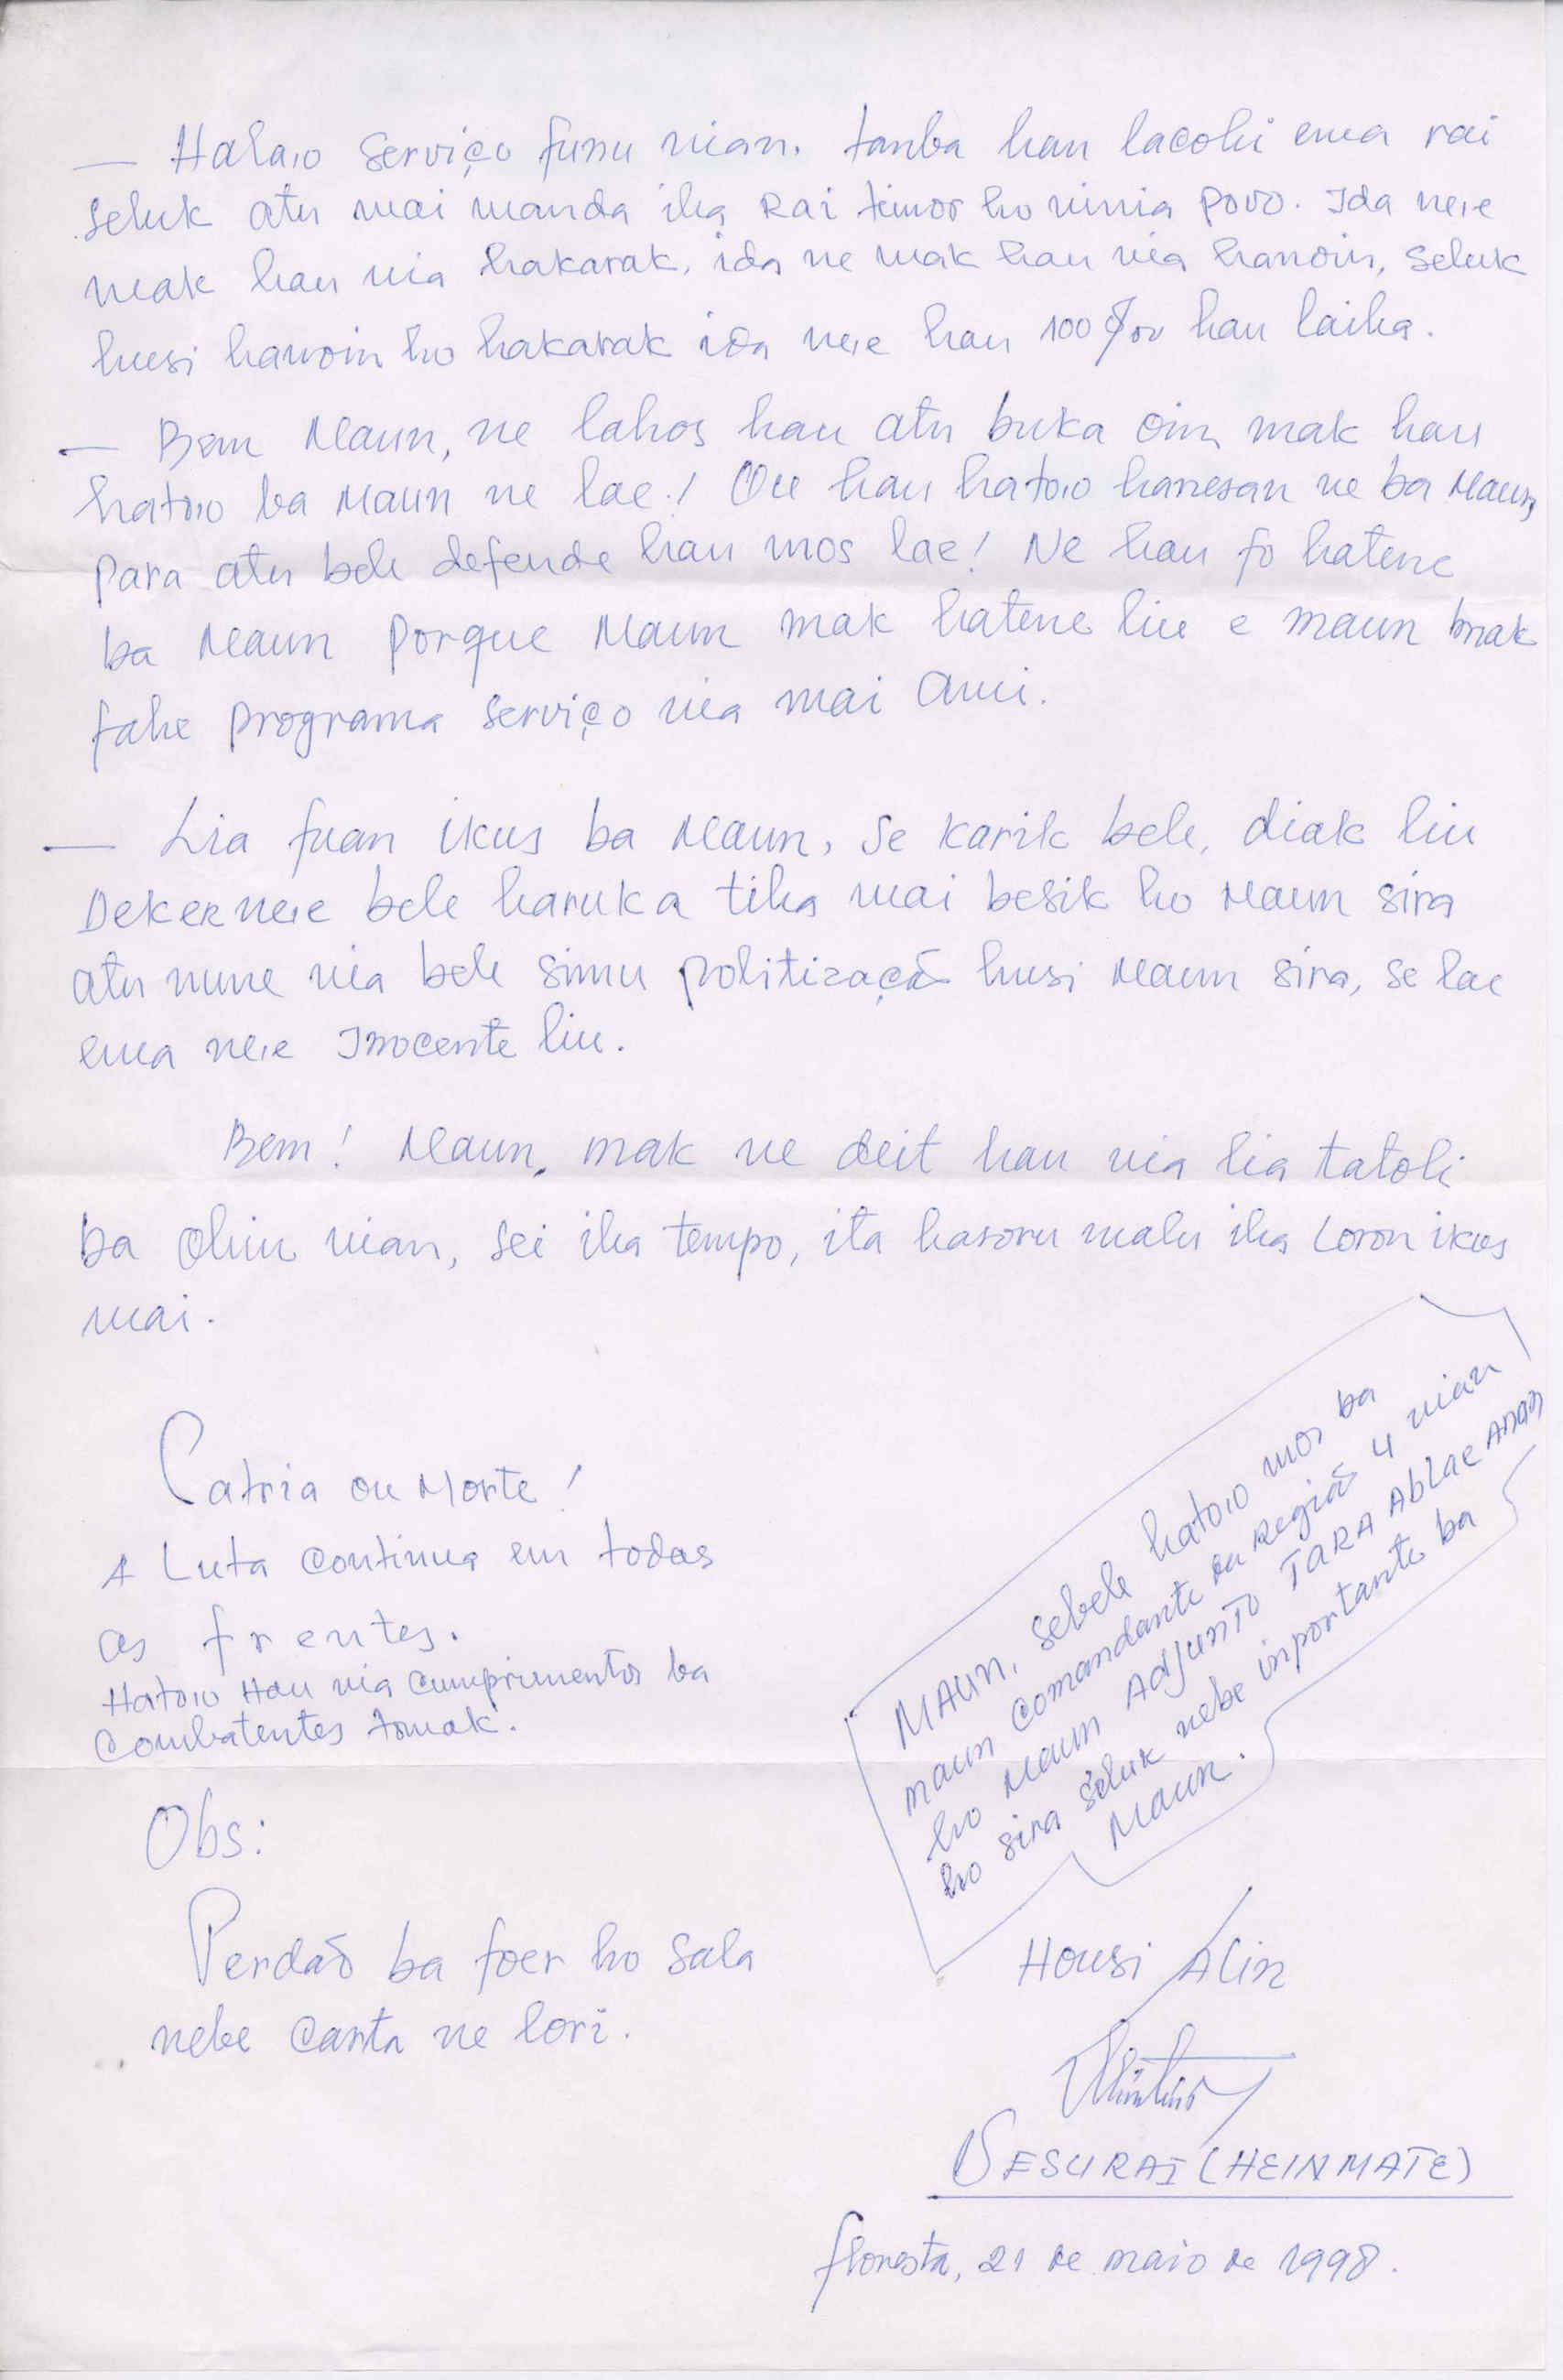 — Halaıo serviço funu nian. tanba hau lacohi ema rai
seluk atu mai manda iha Rai timor ho ninia povo. Ida neıe
mak hau nia hakarak, ida ne mak hau nia hanoin, seluk
husi hanoin ho hakarak ida neıe hau 100 % hau laiha.
— Bem Maun, ne lahos hau atu buka oin mak hau
hatoıo ba Maun ne lae! Ou hau hatoıo hanesan ne ba Maun,
para atu bele defende hau mos lae! Ne hau fo hatene
ba Maun porque Maun mak hatene liu e maun mak
fahe programa serviço nia mai ami.
— Lia fuan ikus ba Maun, se karik bele, diak liu
Deker neıe bele haruka tiha mai besik ho Maun sira
atu nune nia bele simu politização husi Maun sira, se lae
ema neıe Inocente liu.
Bem! Maun, mak ne deit hau nia lia tatoli
ba ohin nian, sei iha tempo, ita hasoru malu iha Loron ikus
mai.
Patria ou Morte!
A Luta continua em todas
as frentes.
Hatoıo Hau nia cumprimentos ba
Combatentes tomak.
Obs:
Perdão ba foer ho sala
nebe carta ne lori.
MAUN, sebele hatoıo mos ba
maun comandante da Região 4 nian
ho Maun Adjunto TARA AblAe ANAN
ho sira seluk nebe inportante ba
Maun.
Housi Alin
SESURAI (HEINMATE)
floresta, 21 de maio de 1998.